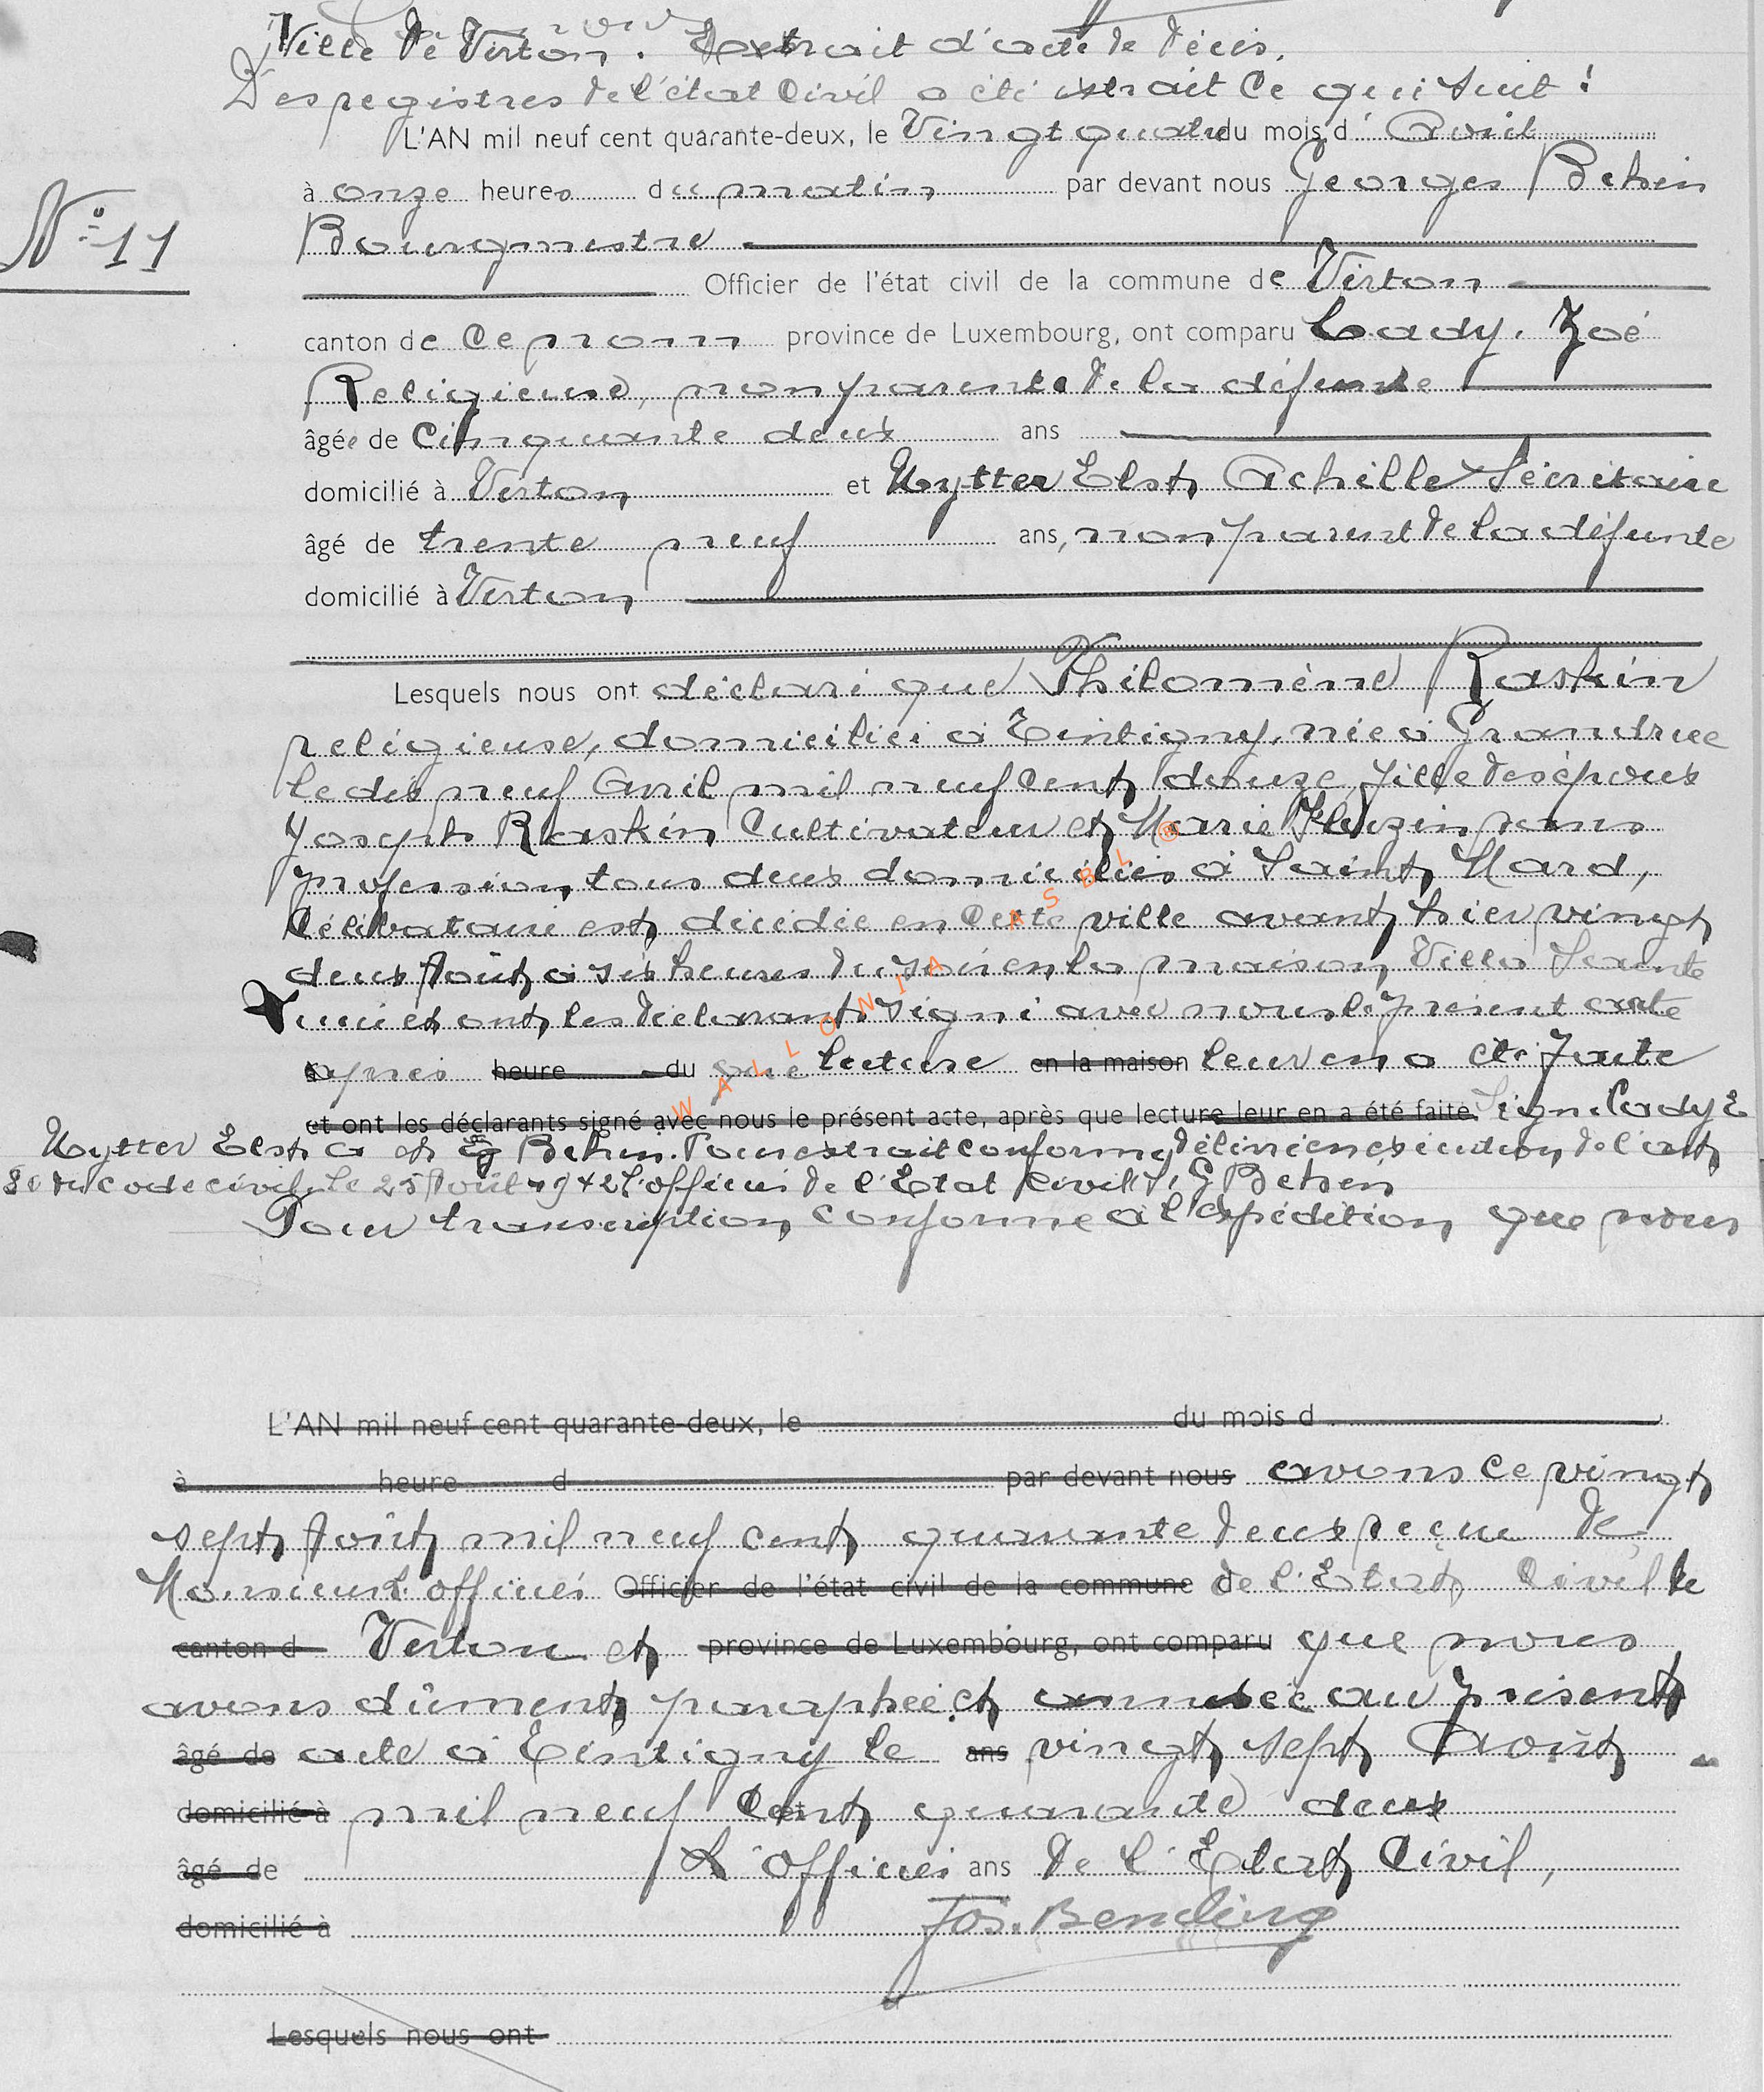 Ville de Virton. Extrait d'acte de décès.
Des registres de l'état Civil a été extrait Ce qui suit :
L'AN mil neuf cent quarante-deux, le Vingt quatre du mois d' Avril
à onze heures du matin par devant nous Georges Behin
N° 11
Bourgmestre
Officier de l'état civil de la commune de Virton
canton de Ce nom province de Luxembourg, ont comparu Cady. Zoé
Religieuse, non parente de la défunte
âgée de Cinquante deux ans
domicilié à Virton et Uytter Elst Achille Sécrétaire
âgé de trente neuf ans, non parent de la défunte
domicilié à Virton
Lesquels nous ont déclaré que Philomène Raskin
religieuse, domiciliée à Tintigny, née à Grandrue
le dix neuf Avril mil neuf Cent douze, fille des époux
Joseph Raskin Cultivateur et Marie sans
profession, tous deux domiciliés à Saint Mard,
Célibataire est décédée en Cette ville avant hier vingt
deux Août à six heures du soir en la maison Villa Sainte
et ont les déclarants signé avec nous le présent acte
après heure du que lecture en la maison leur en a été faite
et ont les déclarants signé avec nous le présent acte, après que lecture leur en a été faite. Signé Cady Z
Uytter Elst A et G Behin. Pour extrait conforme délivré en exécution de l'art
80 du code civil. Le 25 Août 1942 L'officier de l'Etat Civil (s) G Behin
Pour transcription conforme à l'expédition que nous
WALLONIA ASBL ®
L'AN mil neuf cent quarante-deux, le du mois d
à heure d par devant nous avons ce vingt
sept Août mil neuf cent quarante deux reçue de
Monsieur l'officier Officier de l'état civil de la commune de l'Etat Civil de
canton d Virton et province de Luxembourg, ont comparu que nous
avons dûment paraphée et annexée au présent
âgé de acte à Tintigny le ans vingt sept Août
domicilié à mil neuf Cent quarante deux
âgé de L'officier ans de l'Etat Civil,
domicilié à Jos. Bending
Lesquels nous ont